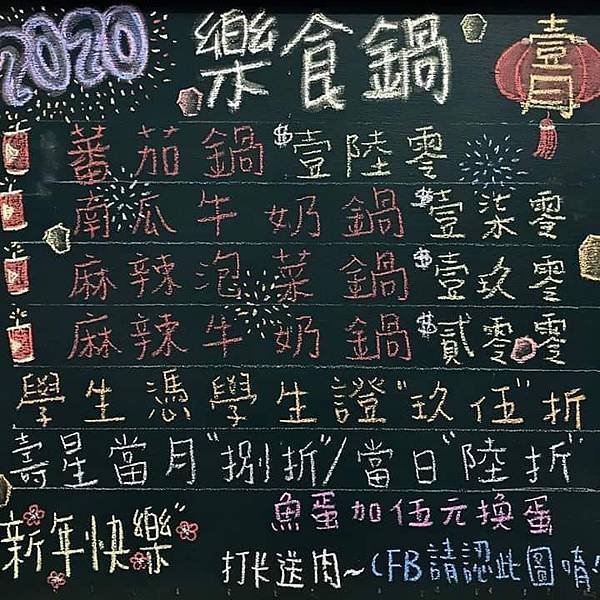 2020 樂食鍋 壹月
蕃茄鍋 $壹陸零
南瓜牛奶鍋 $壹柒零
麻辣泡菜鍋 $壹玖零
麻辣牛奶鍋 $貳零零
學生憑學生證"玖伍"折
壽星當月"捌折"/當日"陸折"
魚蛋加伍元換蛋
新年快樂"
打卡送肉~(FB請認此圖唷!